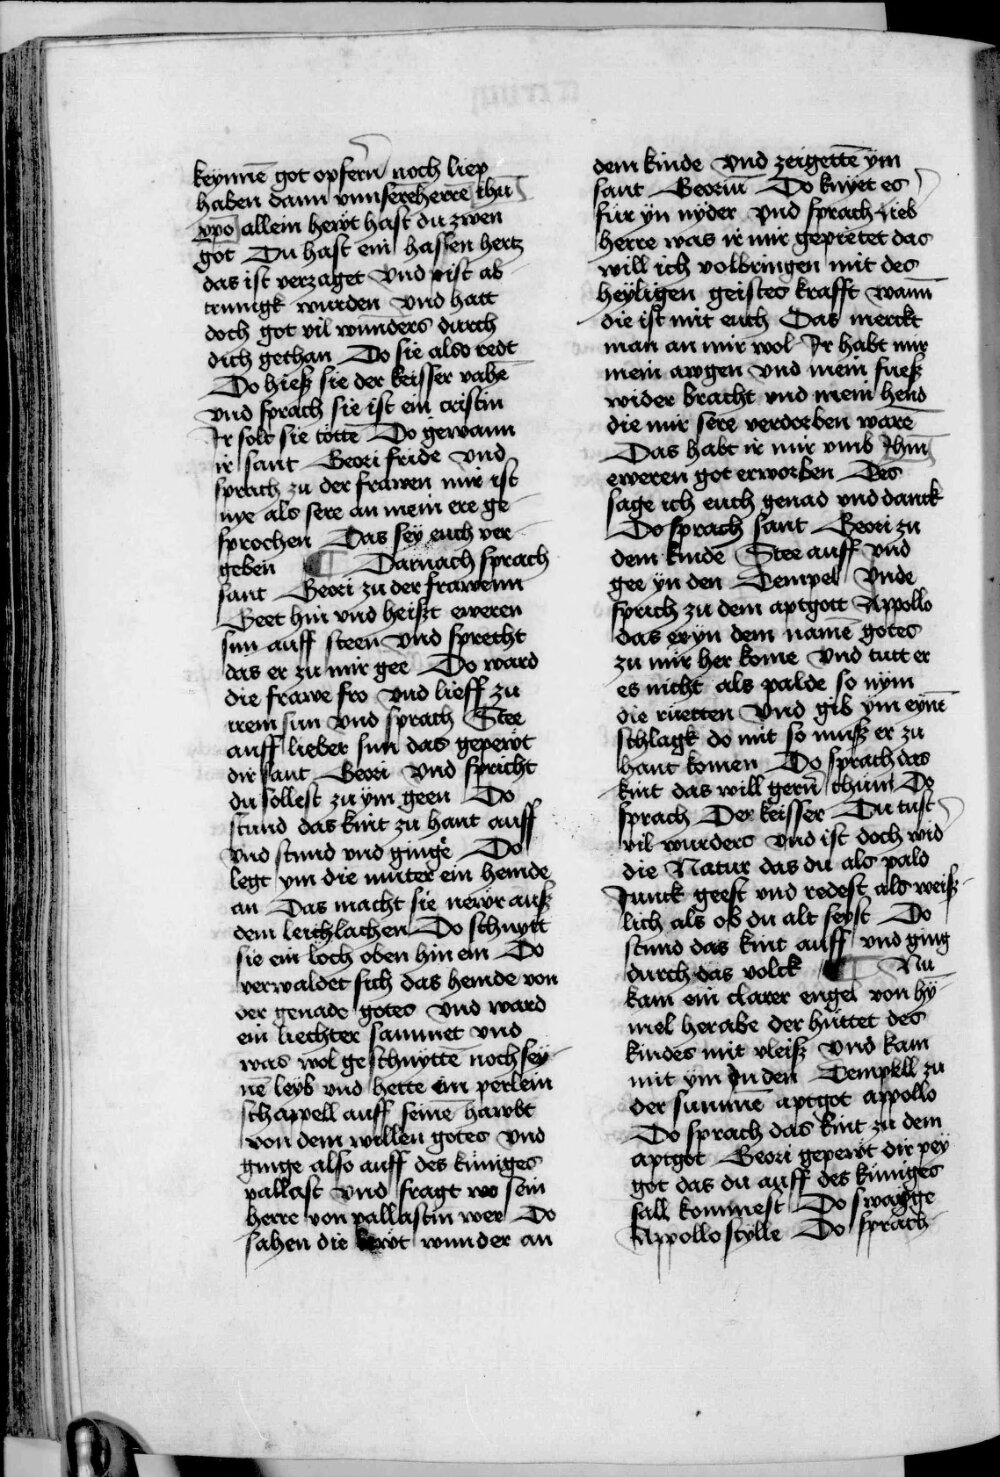 keynnē got opfern̄ noch liep
haben dann vnnsereherre ihū
xp̄o allein hewt hast du zwen
got Du hast ein hassen hertz
das ist verzaget Vnd pist ab
trunigk wurden Vnd hatt
doch got vil wunders durch
dich gethan Do sie also redt
Do hieß sie der keisser vahē
Vnd sprach sie ist ein cristin
Ir solt sie töttē Do gewann
ir sant Geori fride Vnd
sprach zu der frawen mir ist
nye als sere an mein ere ge
sprochen Das sey euch ver
geben ¶ Darnach sprach
sant Geori zu der frawenn
Geet hin vnd heißt eweren
sun auff steen Vnd sprecht
das er zu mir gee Do ward
die frawe fro Vnd lieff zu
irem sun Vnd sprach Stee
auff lieber sun das gepewt
dir sant Geori Vnd spricht
du sollest zu ym geen Do
stund das kint zu hant auff
Vnd stund vnd ginge Do
legt ym die muter ein hemde
an Das macht sie newr auß
dem leichlachen Do schnytt
sie ein loch oben hin ein Do
verwaldet sich das hemde von
der genade gotes Vnd ward
ein liechter sammet Vnd
was wol geschnytte noch sey
nē leyb vnd hette ein perlein
schappell auff seinē hawbt
von dem willen gotes Vnd
ginge also auff des küniges
pallast Vnd fragt wo sein
herre von pallastin wer Do
sahen die lewt wunder an
dem kinde Vnd zeigettē ym
sant Georiū Do knyet es
für yn nyder Vnd sprach lieb
herre was ir mir gepietet das
will ich volbringen mit des
heyligen geistes krafft wann
die ist mit euch Das merckt
man an mir wol Ir habt mir
mein awgen Vnd mein fueß
wider bracht vnd mein hend
die mir sere verdorben warē
Das habt ir mir vmb Ihm̄
eweren got erworben Des
sage ich euch genad vnd danck
Do sprach sant Geori zu
dem kinde Stee auff Vnd
gee yn den Tempel Vnde
sprich zu dem aptgott Appollo
das er yn dem namē gotes
zu mir her kome Vnd tutt er
es nicht als palde so nym
die ruetten Vnd gib ym eynē
schlagk do mit so muß er zu
hant komen Do sprach das
kint das will gern̄ thun Do
sprach Der keisser Du tust
vil wunders Vnd ist doch wid
die Natur das du als pald
Junck geest vnd redest als weiß
lich als ob du alt seyst Do
stund das kint auff vnd ging
durch das volck ¶ Nu
kam ein clarer engel von hy
mel herabe der hüttet des
kindes mit vleiß Vnd kam
mit ym In den Tempell zu
der summē aptgot appollo
Do sprach das kint zu dem
aptgot Geori gepewt dir pey
got das du auff des küniges
sall kommest Do swayge
Appollo stylle Do sprach